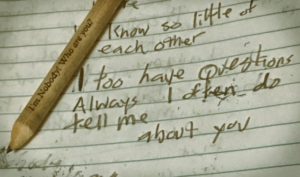 I'm Nobody! Who are you?
Know so little of
each other
I too have Questions
Always I often do
tell me
about you